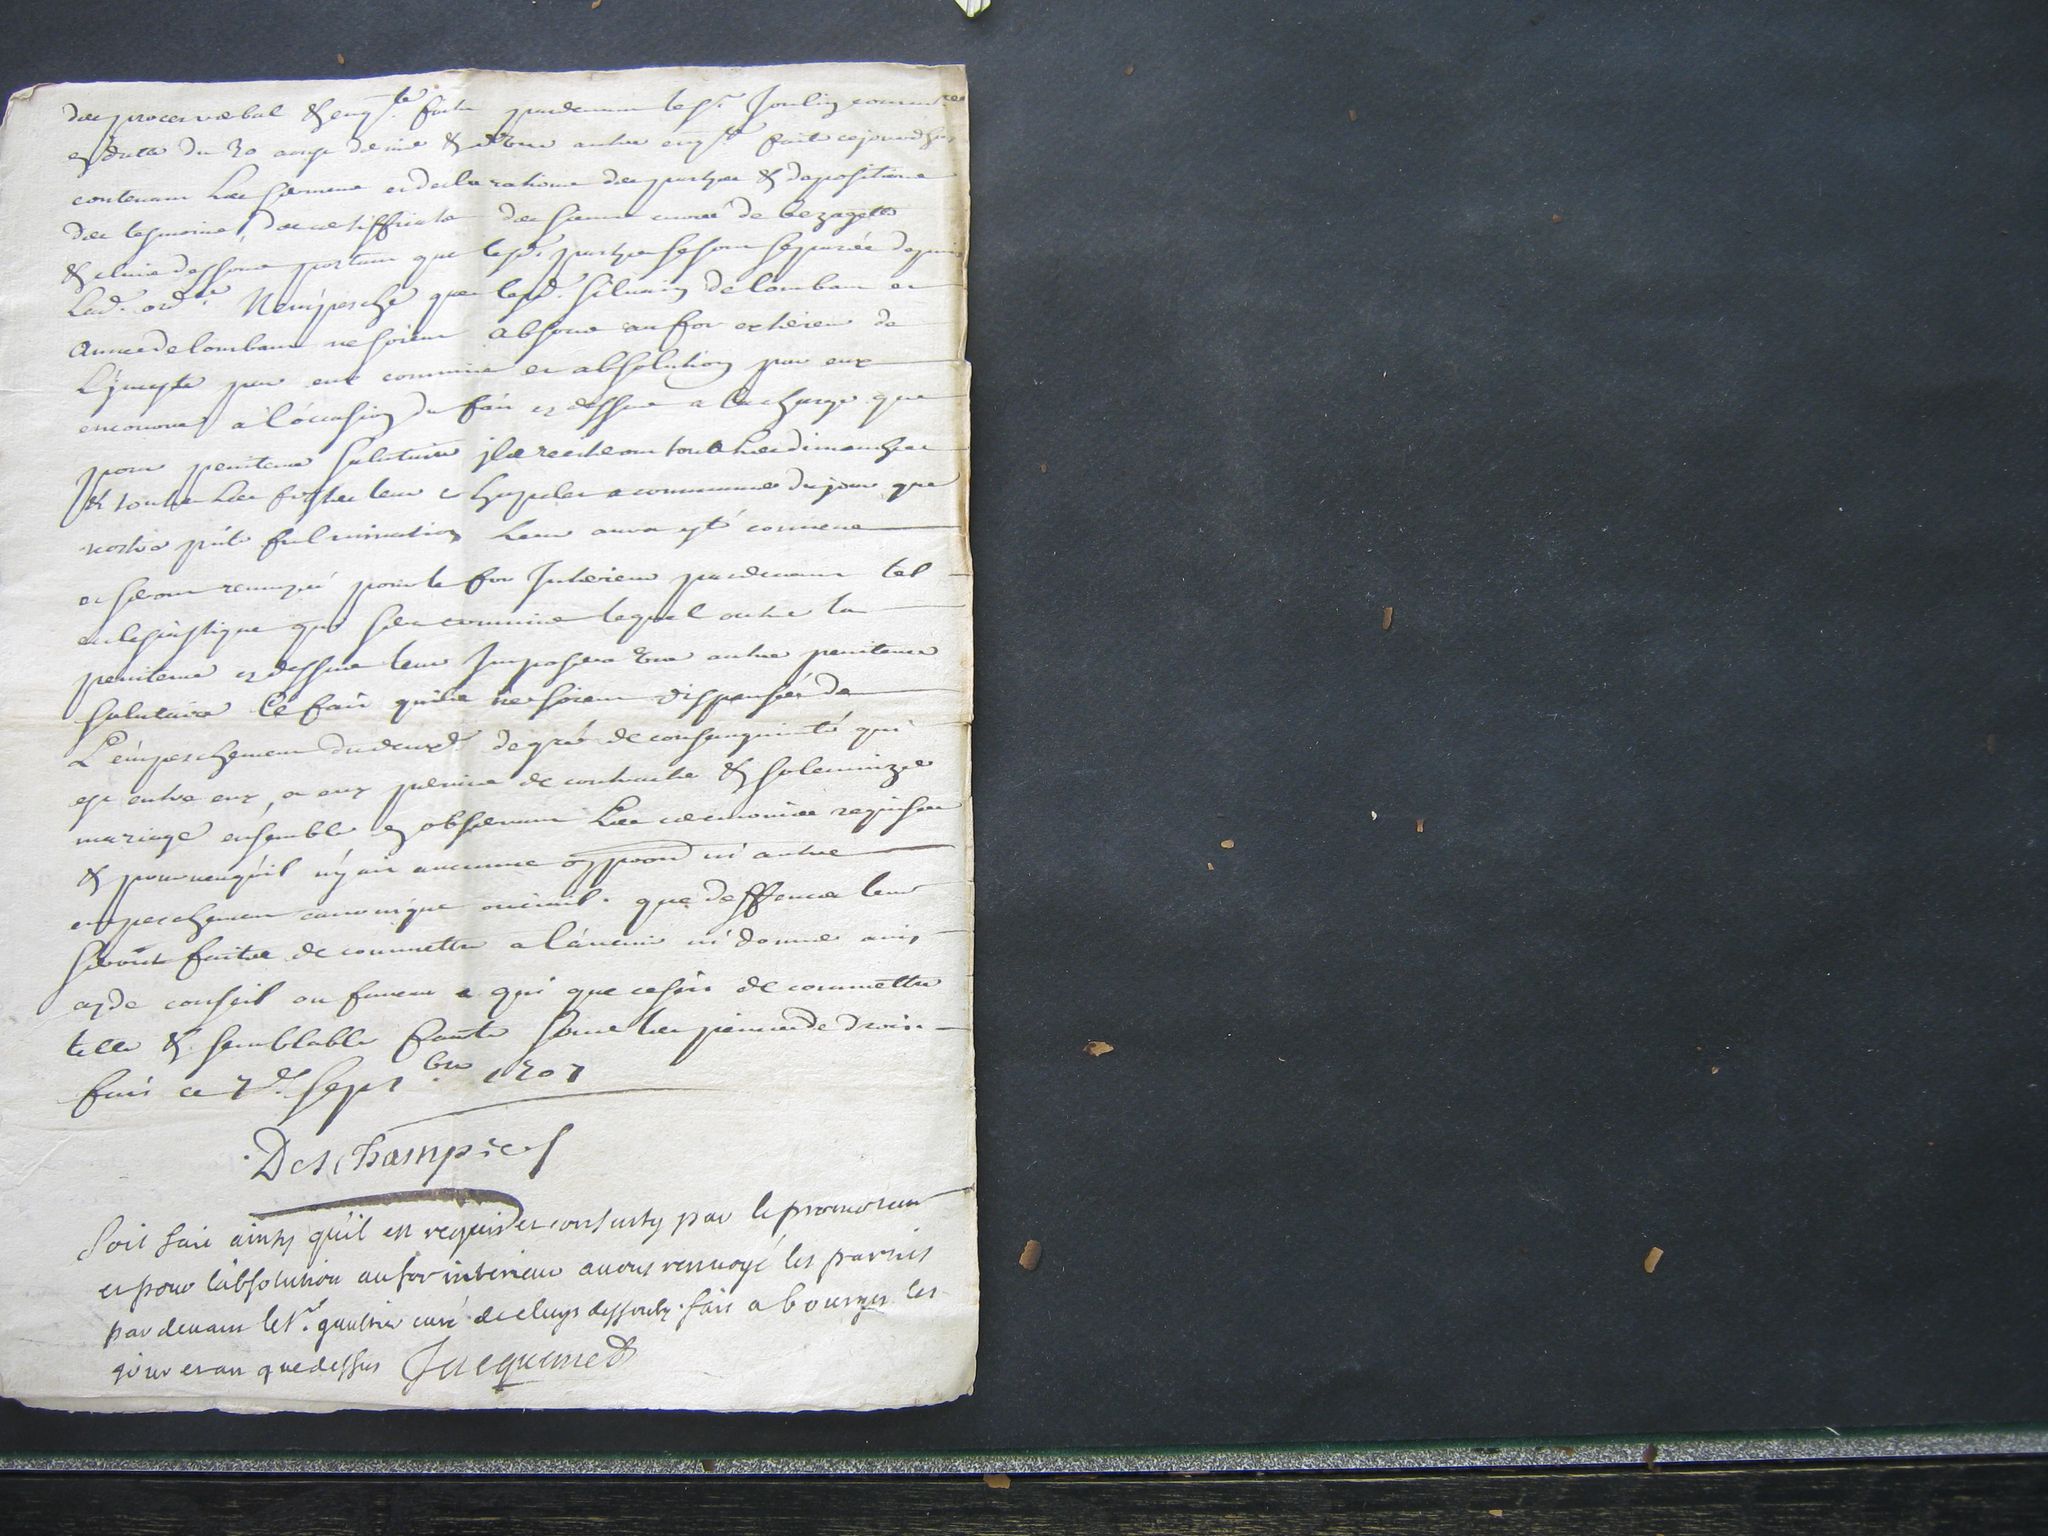 des proces verbal & enq.te faite pardevant le sr. Joulin commre
en datte du 30 aoust dernier & d'une autre enq.te faite cejourdhuy
contenant les serment et declarations des parties & depositions
des tesmoins, des certifficats des sieurs curés de bezagette
& cluis dessous portant que lesd. parties se sont separés depuis
lad. ord.ce N'empesche que lesd. silvain delombau et
Anne delombau ne soient absous au for exterieur de
L'Inceste par eux commise et absolution par eux
encourue à l'occasion du fait cy dessus a la charge que
pour penitence salutaire ils reciteront touts les dimanches
& toutes les festes leur chapelet a commancer du jour que
nostre pnte fulmination leur aura esté connue
et seront renvoyés pour le for Interieur pardevant tel
eclesiastique qui sera commis lequel outre la
penitence cy dessus leur Imposera une autre penitence
salutaire Ce fait qu'ils ne soient dispensés de
L'empeschement du deux.e degré de consanguinité qui
est entre eux, et eux permis de contracter & solemnizer
mariage ensemble en observant les ceremonies requises
& pourveu qu'il n'y ait aucune oppoon ni autre
empeschement canonique ou civil. que deffences leur
seront faites de commettre a l'avenir ni donner avis
ayde conseil ou faveur a qui que ce soit de commettre
telle & semblable faute sous les peines de droit
fait ce 7e. Septbre 1707
Deschamps
Soit fait ainsy qu'il est requis et consenty par le promoteur
et pour l'absolution au for interieur avons renvoyé les parties
par devant le sr. gaultier curé de cluys dessoubz. fait a bourges les
jour et an que dessus Jacquemet